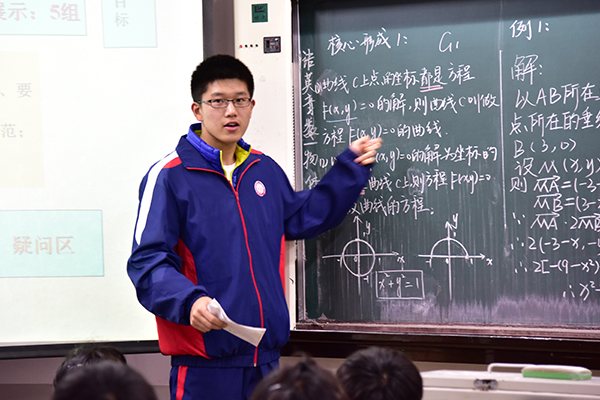 展示:5组
目
标
、要
范:
疑问区
核心形成1:
G₁
曲线C上点的坐标都是方程
F(x,y)=0的解,则曲线C叫做
方程F(x,y)=0的曲线.
(x,y)=0的解为坐标的
曲线C上,则方程F(x,y)=0
曲线的方程.
y
x
y
x
x²+y²=1
例1:
解:
以AB所在
点所在的垂
B(3,0)
设M(x,y)
则 MA=(-3-
MB=(3-
∴ MA 2MB
∴2(-3-x,-
∴2[-(9-x²)
∴x²-